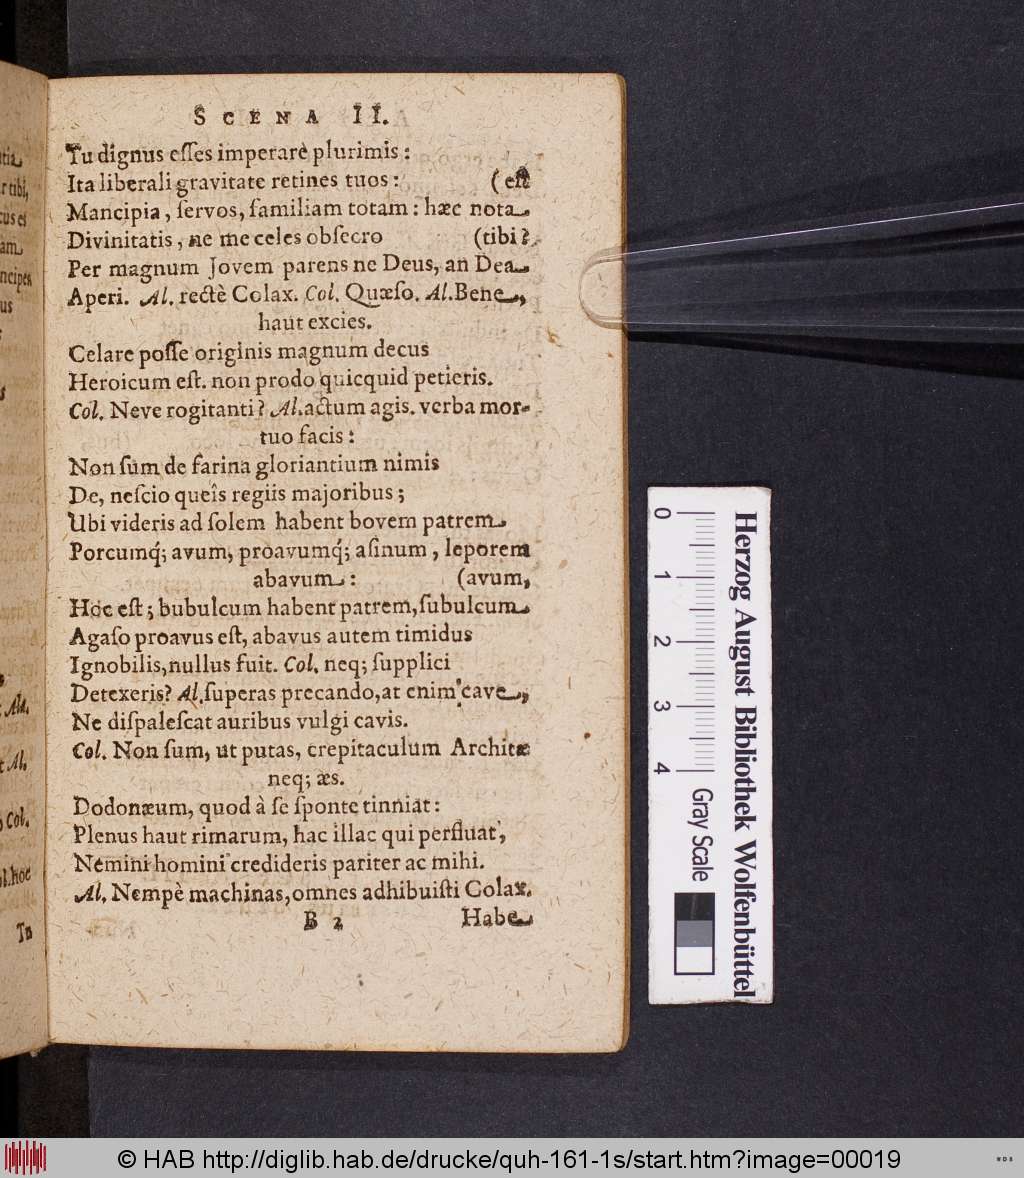 SCENA II.
Tu dignus esses imperarè plurimis:
Ita liberali gravitate retines tuos: (est
Mancipia, servos, familiam totam: hæc nota
Divinitatis, ne me celes obsecro (tibi?
Per magnum Jovem parens ne Deus, an Dea
Aperi. Al. rectè Colax. Col. Quæso. Al. Bene,
haut excies.
Celare posse originis magnum decus
Heroicum est. non prodo quicquid petieris.
Col. Neve rogitanti? Al. actum agis. verba mor-
tuo facis:
Non sum de farina gloriantium nimis
De, nescio queîs regiis majoribus;
Ubi videris ad solem habent bovem patrem
Porcumq́; avum, proavumq́; asinum, leporem
abavum: (avum,
Hoc est; bubulcum habent patrem, subulcum
Agaso proavus est, abavus autem timidus
Ignobilis, nullus fuit. Col. neq; supplici
Detexeris? Al. superas precando, at enim cave,
Ne dispalescat auribus vulgi cavis.
Col. Non sum, ut putas, crepitaculum Architæ
neq; æs.
Dodonæum, quod à se sponte tinniat:
Plenus haut rimarum, hac illac qui perfluat,
Nemini homini credideris pariter ac mihi.
Al. Nempè machinas, omnes adhibuisti Colax.
B 2 Habe
tia
r tibi,
cus es
am
ncipes
us
Ala.
t Al.
Col.
l. hoc
Tu
0 1 2 3 4 Gray Scale
Herzog August Bibliothek Wolfenbüttel
© HAB http://diglib.hab.de/drucke/quh-161-1s/start.htm?image=00019